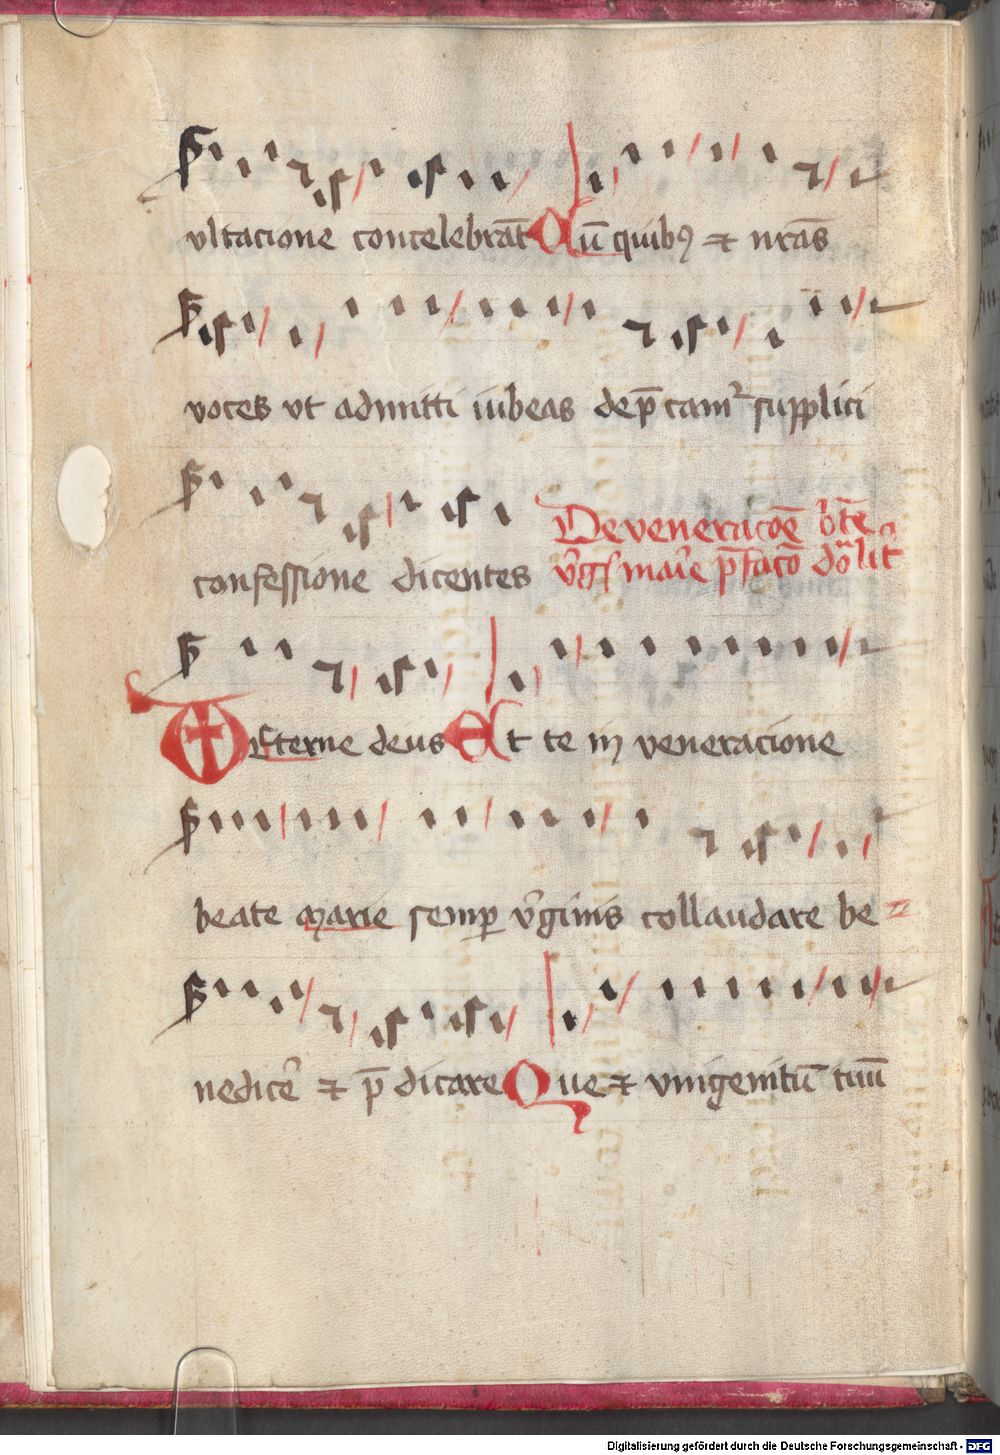 vltacione concelebrāt Cū quibꝯ ⁊ nr̄as
voces vt admitti iubeas dep̄camˀ supplici
confessione dicentes De veneracōe bt̄e
v̾gīs marie p̄facō dn̄lis
Eterne deus Et te in veneracione
beate marie semꝑ v̾ginis collaudare be
nedicē ⁊ p̄dicare Que ⁊ vnigenitū tuū
Digitalisierung gefördert durch die Deutsche Forschungsgemeinschaft - DFG